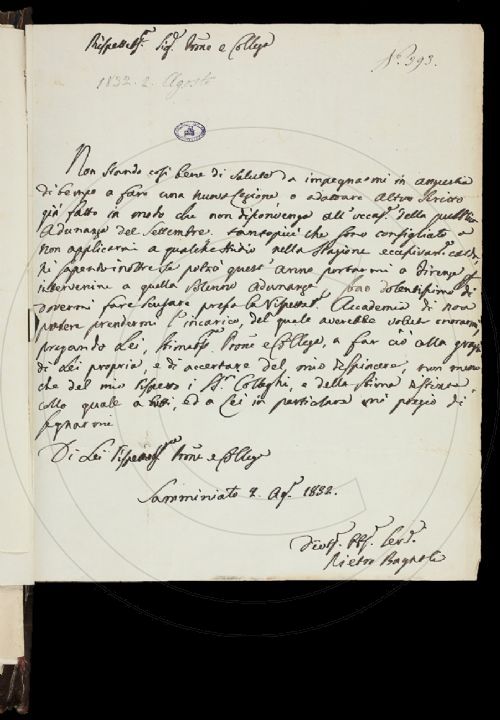 Rispettab.e Sig.r Prōne e Collega
N.o 393.
1832. 2. Agosto
Non stando così bene di salute da impegnarmi in angustia
di tempo a fare una nuova Lezione, o adattare altro scritto
già fatto in modo che non disconvenga all'occas.e della pubb.
Adunanza del Settembre: tantopiù che sono consigliato a
non applicarmi a qualche studio nella stagione eccessivam.e calda,
nè sapendo inoltre se potrò quest'anno portarmi a Firenze p
intervenire a quella solenne Adunanza, sono dolentissimo di
dovermi fare scusare presso la Rispettab. Accademia di non
potere prendermi l'incarico, del quale averebbe voluto onorarmi,
pregando Lei, stimatis. Prone e Collega, a far ciò colla grazia
di Lei propria, e di accertare del mio dispiacere, non meno
che del mio rispetto i SS.ri Colleghi, e della stima distinta,
colla quale a tutti, ed a Lei in particolare mi pregio di
segnarmi
Di Lei Rispettab. Prōne e Collega
Samminiato 2. Ag.o 1832.
Devot. Obb. Ser.e
Pietro Bagnoli